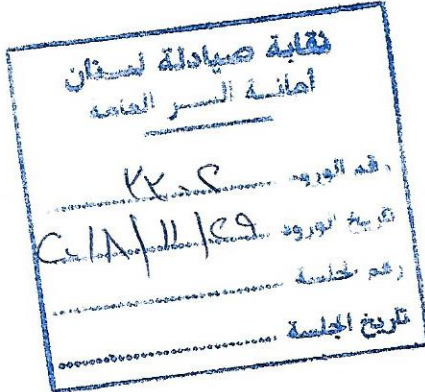 نقابة صيادلة لبنان
أمانة السر العامه
رقم الورود ٢٢٠٢
تاريخ الورود ٢٠١٨/١١/٢٩
رقم الجلسة
تاريخ الجلسة